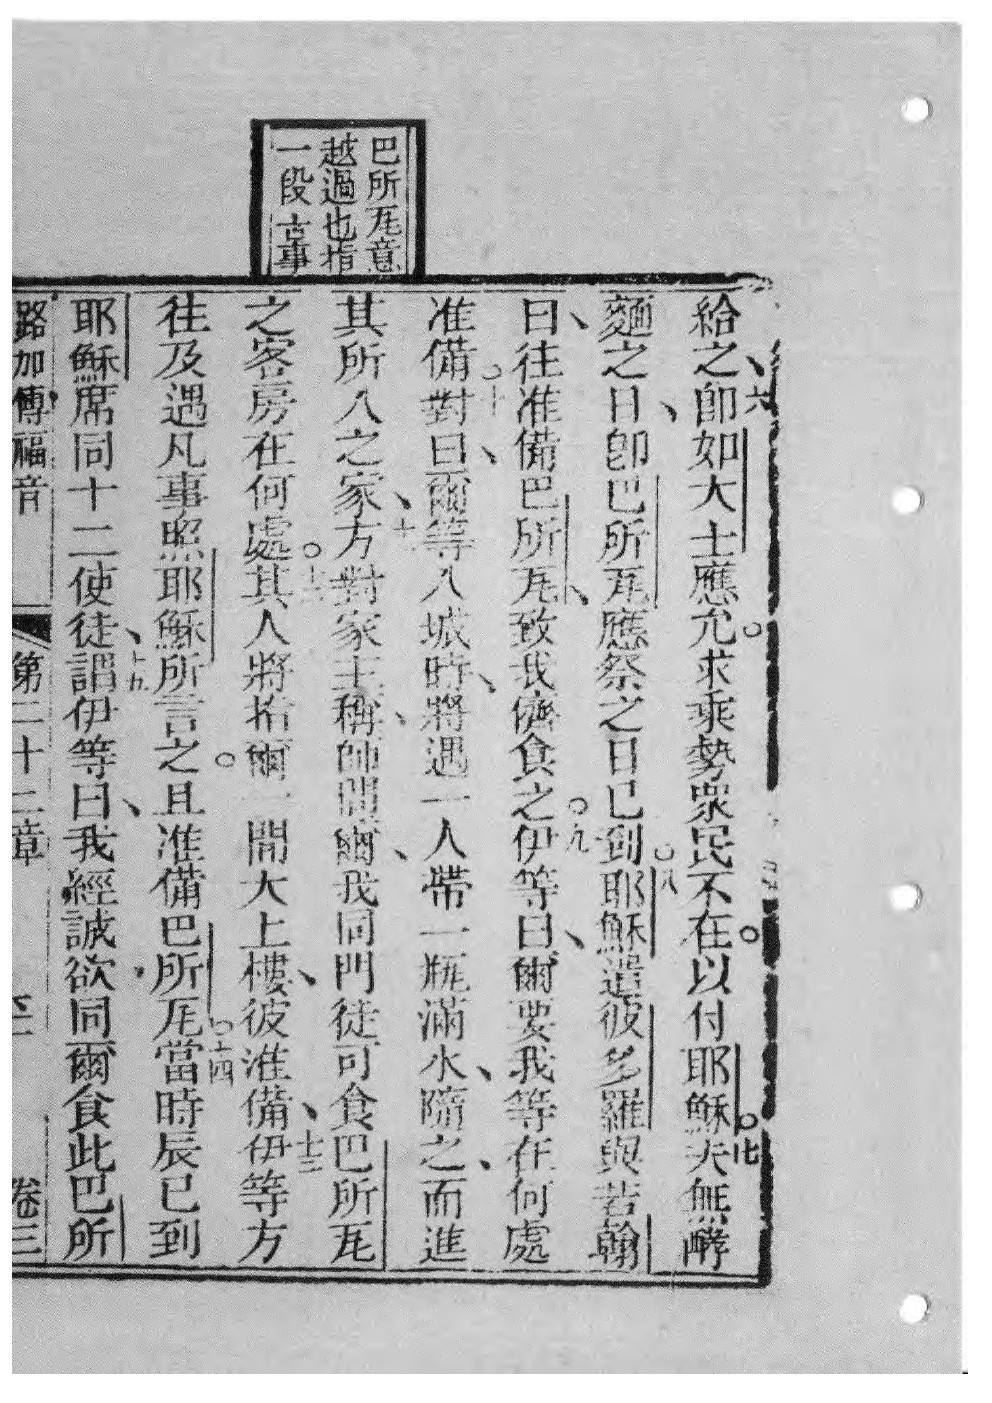 巴所𠀋意
越過也指
一段古事
給之六卽如大士應允。求乘勢衆民不在。以付耶穌。七夫無酵
麵之日卽巴所𠀋應祭之日已到。八耶穌遣彼多羅與若翰
曰、往准備巴所𠀋、致我儕食之。九伊等曰、爾要我等在何處
准備。十對曰、爾等入城時、將遇一人帶一瓶滿水、隨之、而進
其所入之家、十一方對家主稱、師問爾、我同門徒可食巴所𠀋
之客房在何處。十二其人將指爾一開大上樓、彼准備、十三伊等方
往及遇凡事照耶穌所言之。且准備巴所𠀋。十四當時辰已到
耶穌席同十二使徒、十五謂伊等曰、我經誠欲同爾食此巴所
路加傳福音 第二十二章 卷三